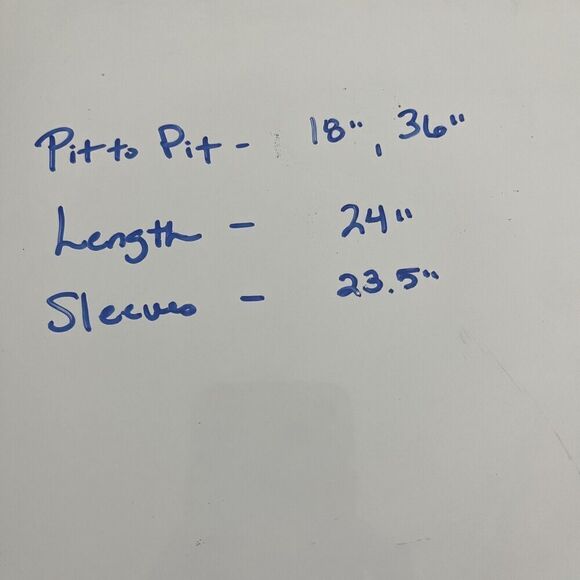 Pit to Pit - 18", 36"
Length - 24"
Sleeves - 23.5"